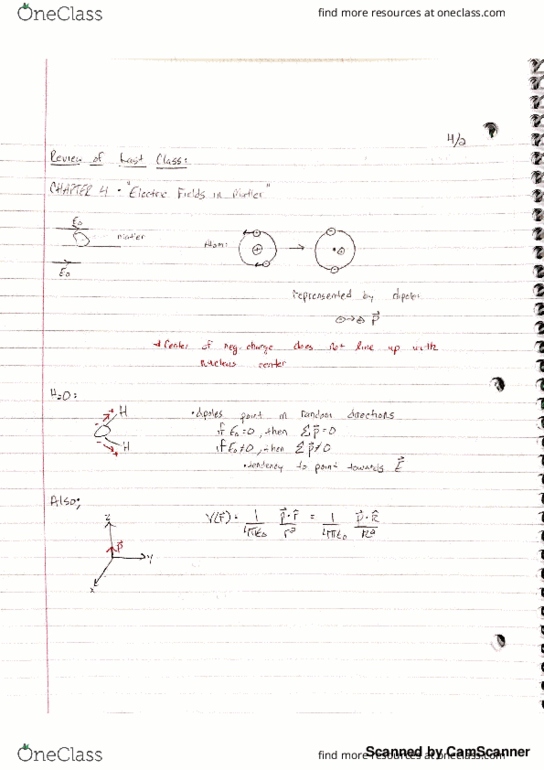 OneClass
find more resources at oneclass.com
4/2
Review of Last Class:
CHAPTER 4 - "Electric Fields in Matter"
E₀
matter
E₀
Atom:
represented by dipoles
p⃗
center of neg. charge does not line up with
nucleus center
H₂O:
H
H
• dipoles point in random directions
if E₀=0, then Σp⃗=0
if E₀≠0, then Σp⃗≠0
• tendency to point towards E⃗
Also;
z
p⃗
y
x
V(r⃗) = 1/4πε₀ p⃗·r̂/r² = 1/4πε₀ p⃗·r̂/r²
OneClass
find more resources at oneclass.com
Scanned by CamScanner